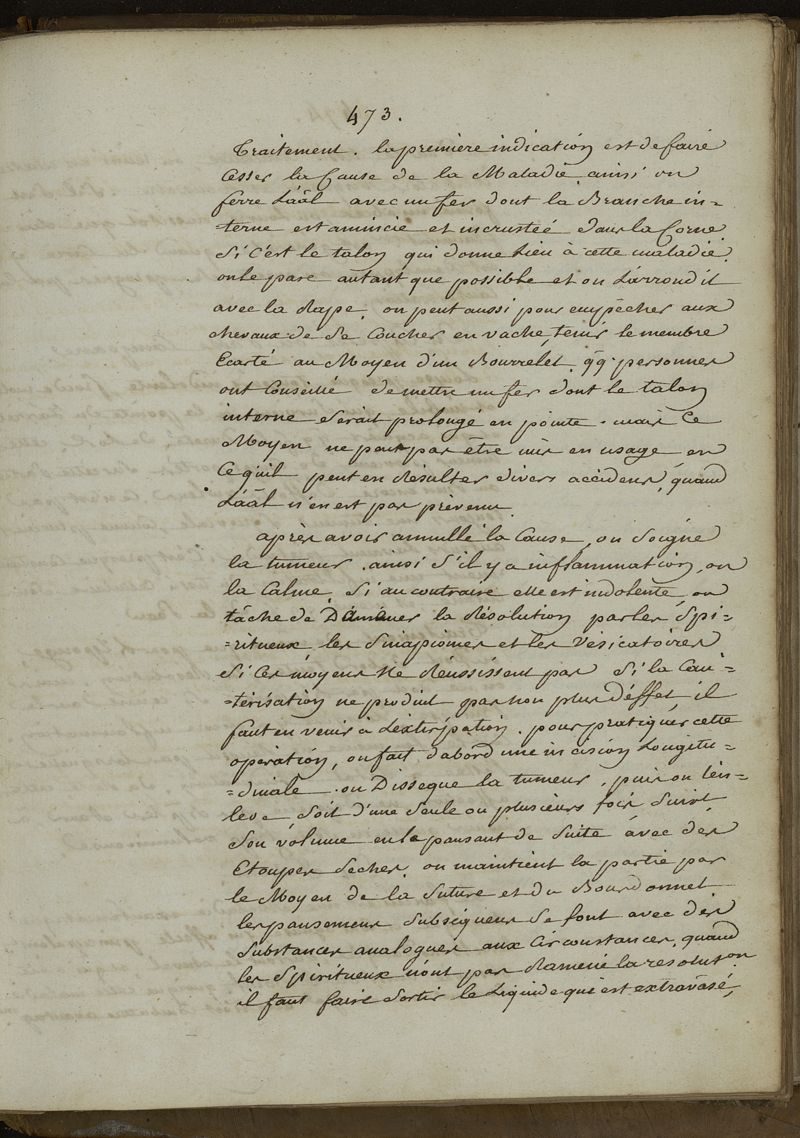 473.
Traitement. la première indication est de faire
Cesser la Cause de la Maladie ainsi on
ferre L'aâl avec un fer dont la Branche in-
terne est amincie et incrusteé dans la Corne
Si C'est le talon qui donne Lieu à cette maladie.
on le pare autant que possible et on L'arrondit
avec la Rape, on peut aussi pour empêcher aux
chevaux de Se Coucher en vache, tenir le membre
Ecarté au Moyen d'un Bourrelet. qq. personnes
ont Conseillé de mettre un fer dont le talon
interne Serait prolongé en pointe. mais Ce
Moyen ne peut pas être mis en usage en
Ce qu'il peut en Résulter divers accidens, quand
L'aâl n'en est pas prèvenu
après avoir annullé la Cause, on Soigne
la tumeur. ainsi S'il y a inflammation, on
la Calme, Si au contraire elle est indolente, on
tâche de Damener la Résolution par les Spi-
=ritueux, les Sinapismes et les Vésicatoires
Si Ces moyens Ne Réussissent pas Si la Cau-
-térisation ne produit pas non plus d'éffet, il
faut en venir à L'extirpation. pour pratiquer cette
opération, on fait d'abord une incision Longitu-
=dinale. on Disseque la tumeur, puis on l'en-
leve, Soit d'une Seule ou plusieurs fois Suivt
Son volume en le pansant de Suite avec des
Etoupes Seches, on maintient la partie par
le Moyen de la Suture et du Bourdonnet
les pansemens Subséquens Se font avec des
Substances analogues aux Circonstances, quand
les Spiritueux n'ont pas Ramené la resolution
il faut faire Sortir le Liquide qui est extravasé,